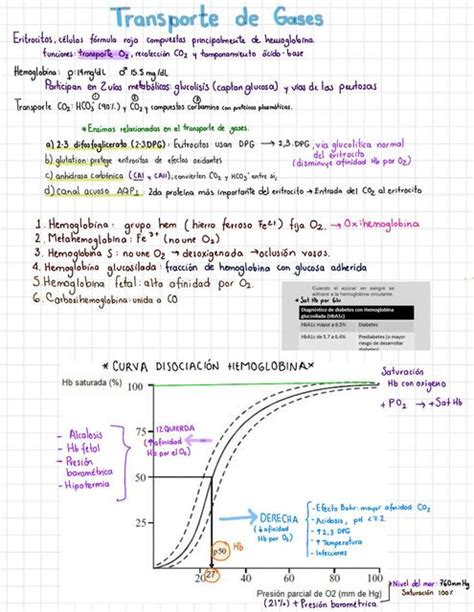 Transporte de Gases
Eritrocitos, células fórmula roja compuestas principalmente de hemoglobina
funciones: transporte O₂, recolección CO₂ y tamponamiento ácido-base
Hemoglobina: ♀ 14mg/dL ♂ 15.5 mg/dL
Participan en 2 vías metabólicas: glucolisis (captan glucosa) y vías de las pentosas
Transporte CO₂: HCO₃⁻ (90%) y CO₂ y compuestos carbamino con proteínas plasmáticas.
* Enzimas relacionadas en el transporte de gases.
a) 2-3 difosfoglicerato (2-3 DPG): Eritrocitos usan DPG → 2,3 DPG, via glucolítica normal
del eritrocito
(disminuye afinidad Hb por O₂)
b) glutation: protege eritrocitos de efectos oxidantes
c) anhidrasa carbónica (CAI y CAII); convierten CO₂ y HCO₃⁻ entre sí,
d) canal acuoso AQP1: 2da proteína más importante del eritrocito → Entrada del CO₂ al eritrocito
1. Hemoglobina: grupo hem (hierro ferroso Fe²⁺) fija O₂. → Oxihemoglobina
2. Metahemoglobina: Fe³⁺ (no une O₂)
3. Hemoglobina S: no une O₂ → desoxigenada → oclusión vasos.
4. Hemoglobina glucosilada: fracción de hemoglobina con glucosa adherida
5. Hemoglobina fetal: alta afinidad por O₂.
6. Carboxihemoglobina: unida a CO
Cuando el azúcar en sangre se
adhiere a la hemoglobina circulante.
* Sat Hb por Glu
Diagnóstico de diabetes con Hemoglobina
glucosilada (HbA1c)
HbA1c mayor a 6.5% Diabetes
HbA1c de 5.7 a 6.4% Prediabetes (o mayor
riesgo de desarrollar
diabetes)
* CURVA DISOCIACIÓN HEMOGLOBINA *
Saturación
Hb con oxígeno
+ PO₂ → + Sat Hb
Hb saturada (%)
100
75
50
25
IZQUIERDA
(↑ afinidad
Hb por el O₂)
- Alcalosis
- Hb fetal
- Presión
barométrica
- Hipotermia
DERECHA
(↓ afinidad
Hb por O₂)
- Efecto Bohr: mayor afinidad CO₂
- Acidosis, pH <7.2
- ↑ 2,3 DPG
- ↑ Temperatura
- Infecciones
p50 Hb
20 27 40 60 80 100
Presión parcial de O2 (mm de Hg)
(21%) + Presión barométrica.
Nivel del mar: 760mmHg
Saturación 100%